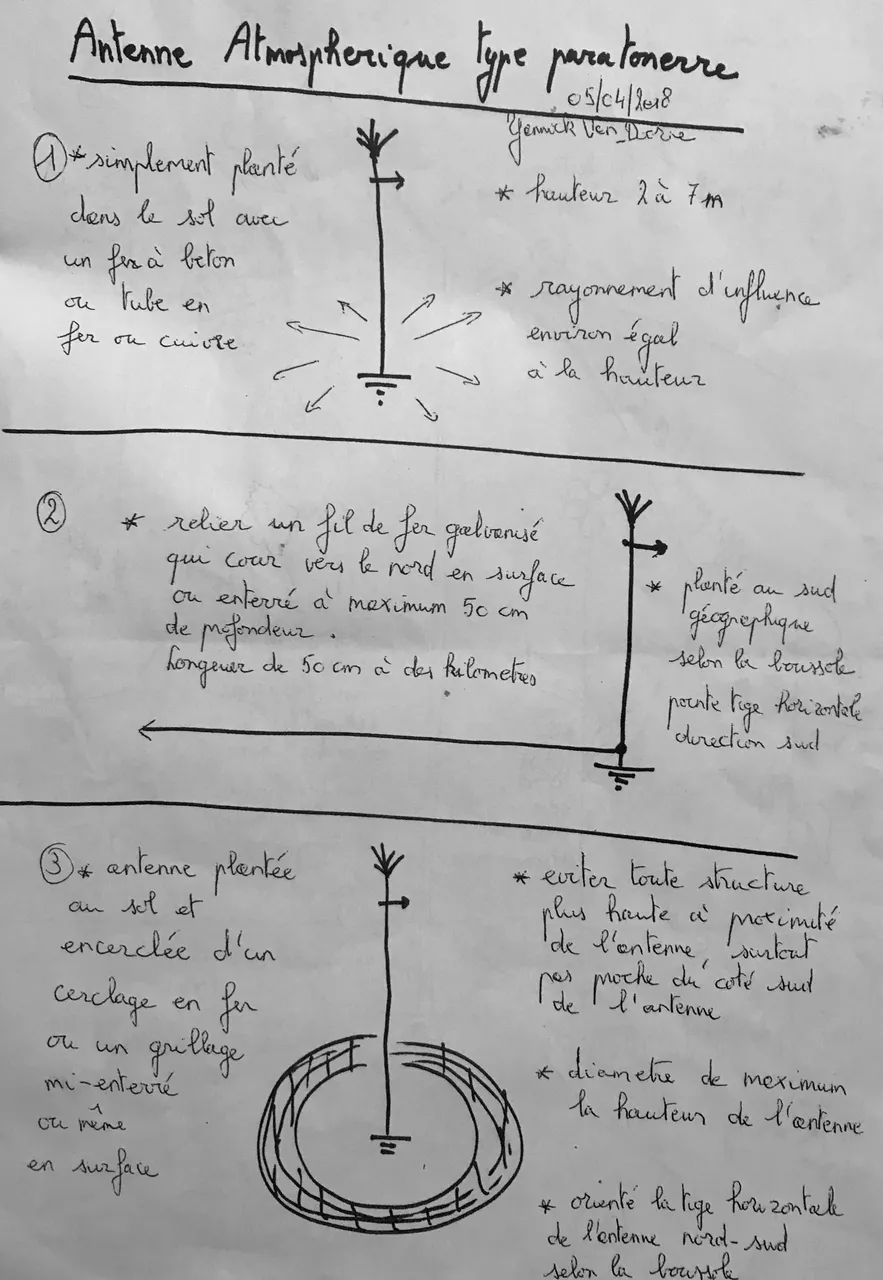 Antenne Atmospherique type paratonerre
05/04/2018
Yannick Van Doorne
① * simplement planté
dans le sol avec
un fer à beton
ou tube en
fer ou cuivre
* hauteur 2 à 7m
* rayonnement d'influence
environ égal
à la hauteur
② * relier un fil de fer galvanisé
qui cour vers le nord en surface
ou enterré à maximum 50 cm
de profondeur.
Longeur de 50 cm à des kilometres
* planté au sud
géographique
selon la boussole
pointe tige horizontale
direction sud
③ * antenne plantée
au sol et
encerclée d'un
cerclage en fer
ou un grillage
mi-enterré
ou même
en surface
* eviter toute structure
plus haute à proximité
de l'antenne, surtout
pas proche du coté sud
de l'antenne
* diametre de maximum
la hauteur de l'antenne
* orienté la tige horizontale
de l'antenne nord-sud
selon la boussole